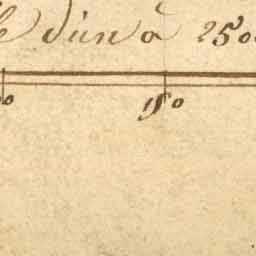 d'un à 250
150